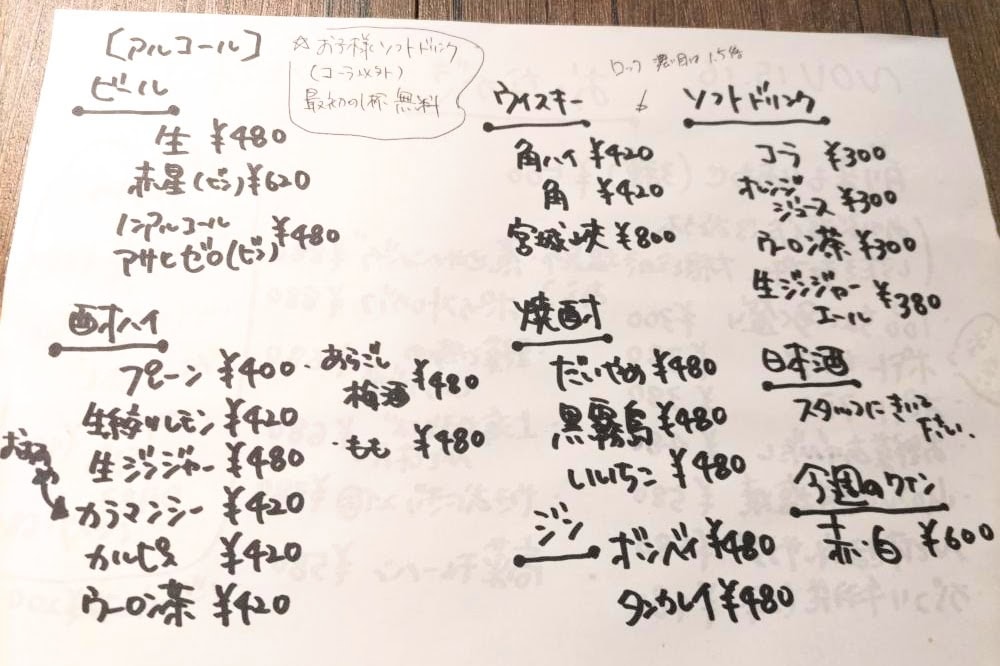 [アルコール]
☆お子様ソフトドリンク
(コーラ以外)
最初の1杯 無料
ビール
生 ¥480
赤星(ビン)¥620
ノンアルコール
アサヒゼロ(ビン) ¥480
酎ハイ
プレーン ¥400
生搾りレモン ¥420
生ジンジャー ¥480
おすすめ
カラマンシー ¥420
カルピス ¥420
ウーロン茶 ¥420
・あらごし
梅酒 ¥480
・もも ¥480
ロック 濃い目は 1.5倍
ウイスキー
角ハイ ¥420
角 ¥420
宮城峡 ¥800
焼酎
だいやめ ¥480
黒霧島 ¥480
いいちこ ¥480
ジン
ボンベイ ¥480
タンカレイ ¥480
ソフトドリンク
コーラ ¥300
オレンジ
ジュース ¥300
ウーロン茶 ¥300
生ジンジャー
エール ¥380
日本酒
スタッフにきいて
下さい。
今週のワイン
赤・白 ¥600